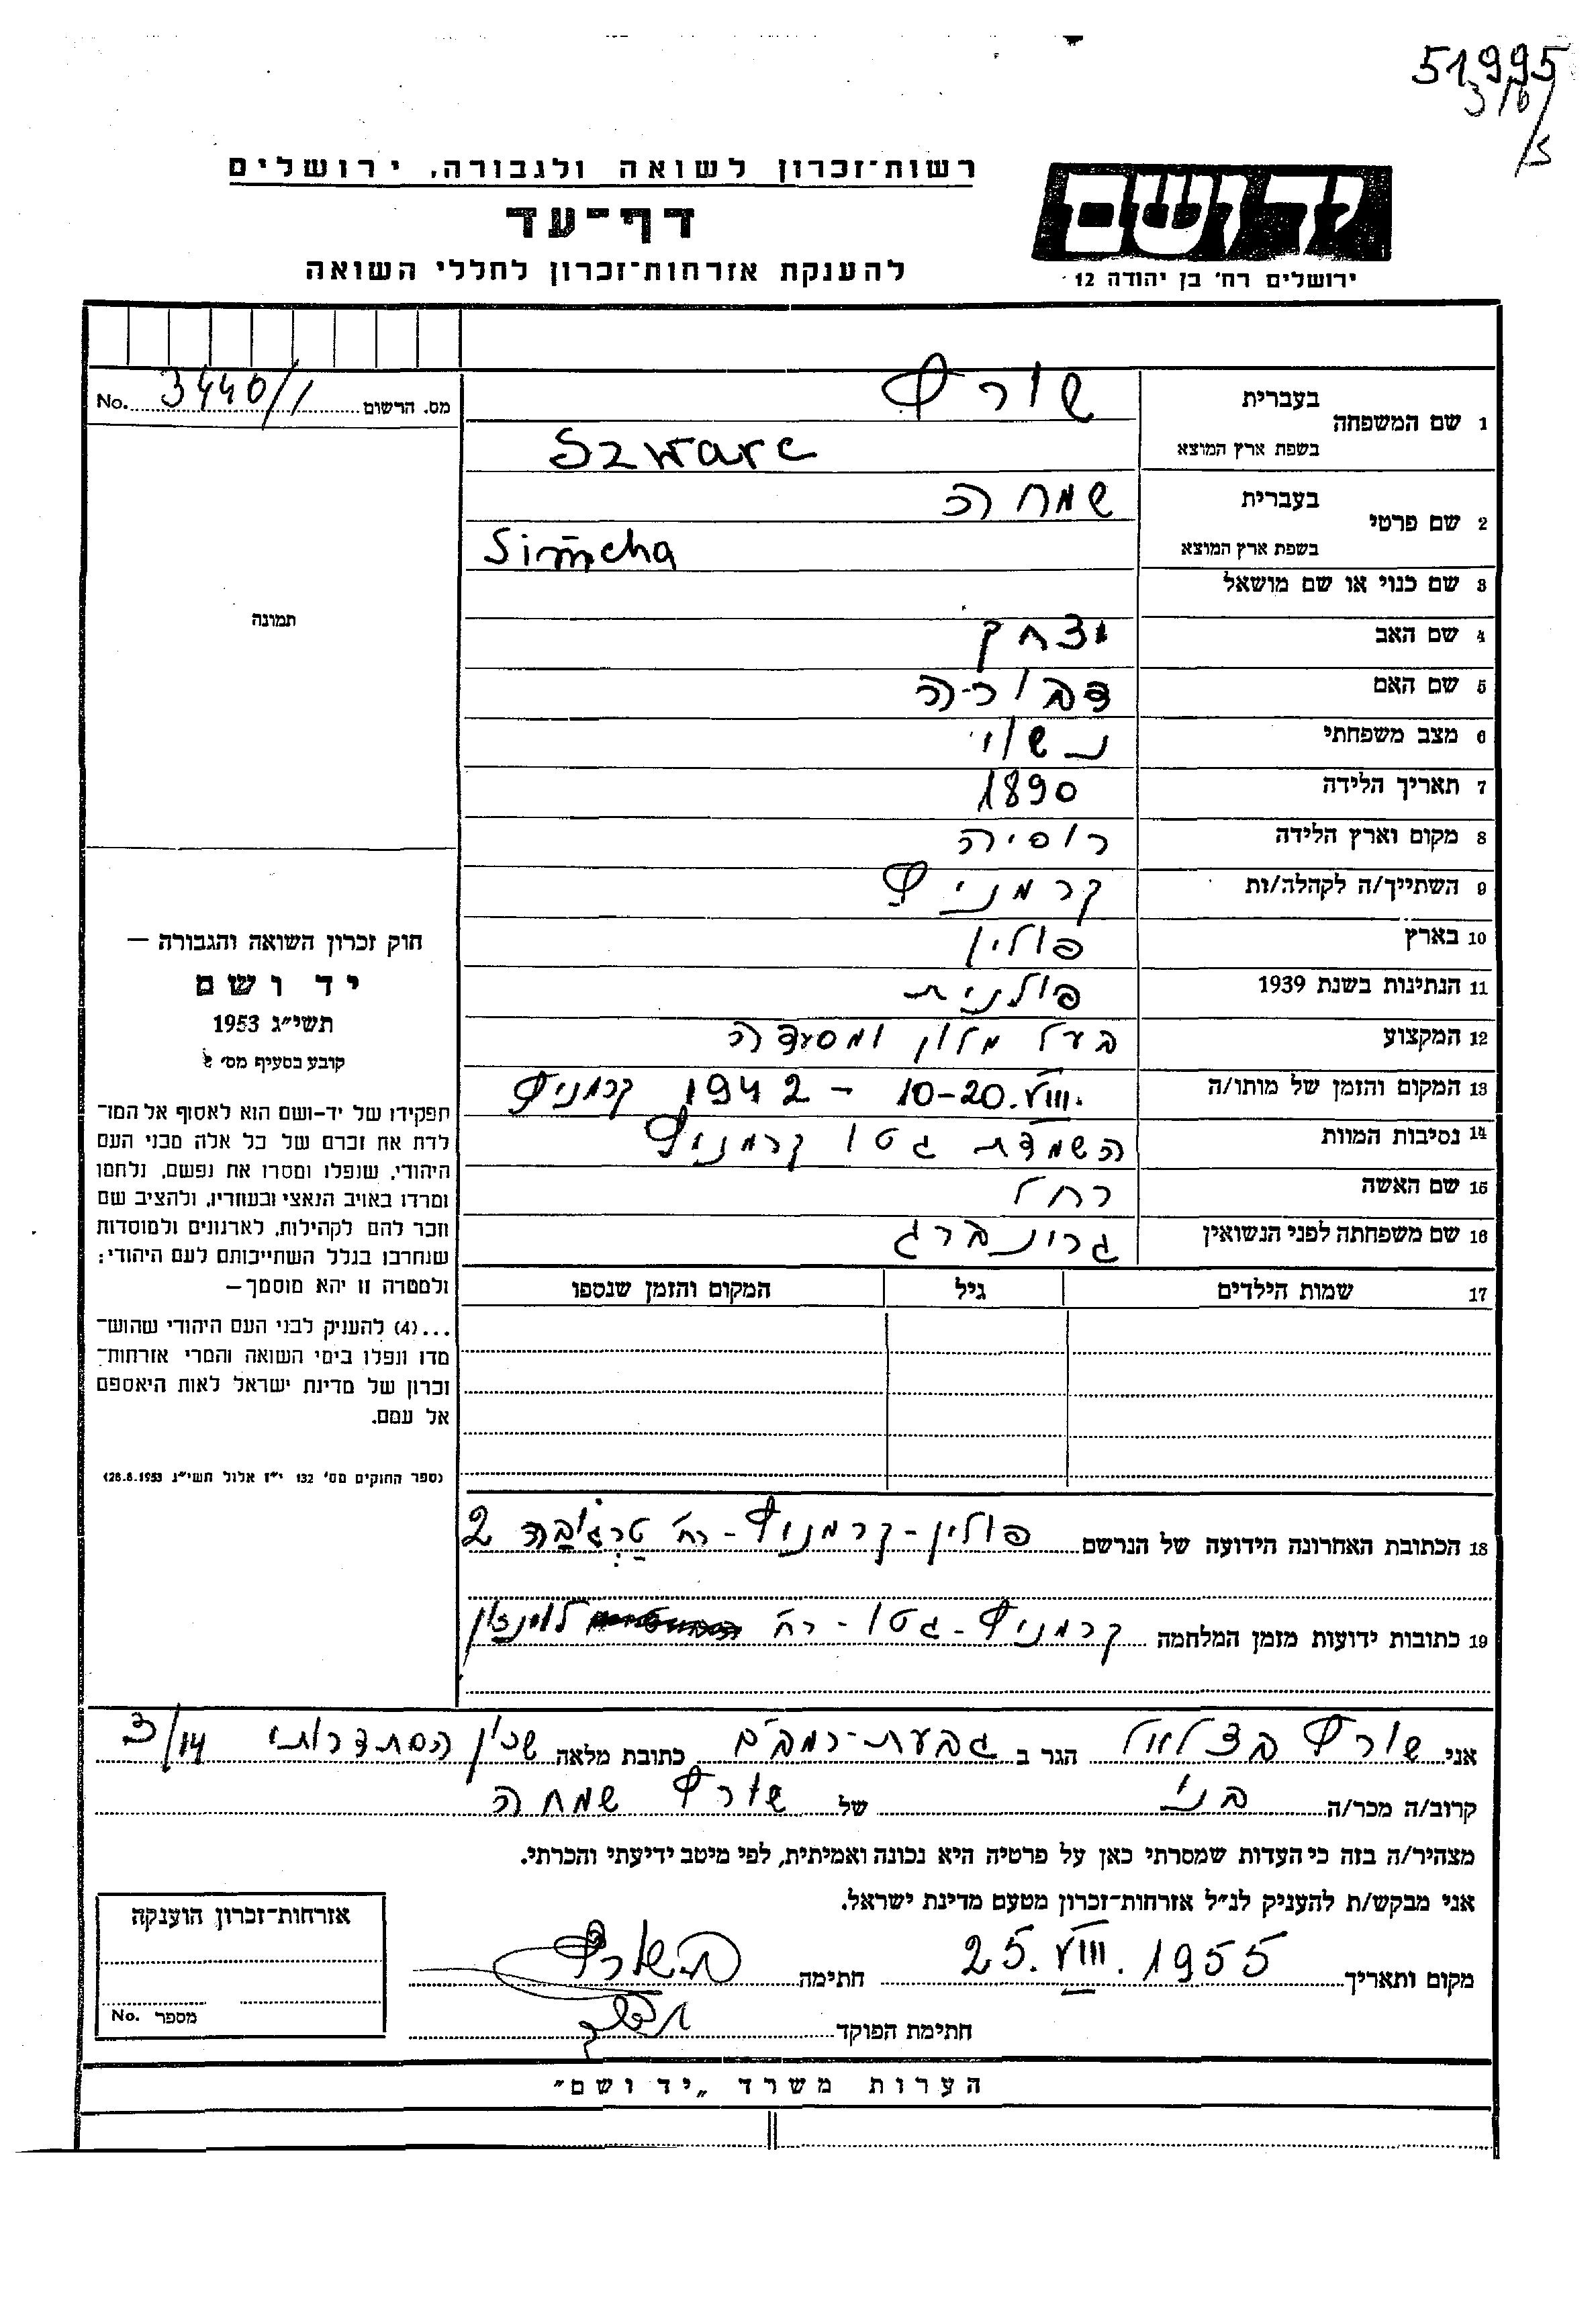 51995
רשות־זכרון לשואה ולגבורה, ירושלים
דף־עד
להענקת אזרחות־זכרון לחללי השואה
יד ושם
ירושלים רח' בן יהודה 12
מס. הרשום 3440/1 No.
1 שם המשפחה בעברית שורץ
בשפת ארץ המוצא Szwarc
2 שם פרטי בעברית שמחה
בשפת ארץ המוצא Simcha
3 שם כנוי או שם מושאל
4 שם האב יצחק
5 שם האם דבורה
6 מצב משפחתי נשוי
7 תאריך הלידה 1890
8 מקום וארץ הלידה רוסיה
9 השתייך/ה לקהלה/ות קרמניץ
10 בארץ פולין
11 הנתינות בשנת 1939 פולנית
12 המקצוע בעל מלון ומסעדה
13 המקום והזמן של מותו/ה 10-20.VIII. - 1942 קרמניץ
14 נסיבות המוות השמדת גטו קרמניץ
15 שם האשה רחל
16 שם משפחתה לפני הנשואין גרונברג
17 שמות הילדים גיל המקום והזמן שנספו
18 הכתובת האחרונה הידועה של הנרשם פולין-קרמניץ-רח' 2
19 כתובות ידועות מזמן המלחמה קרמניץ-גטו-רח' לוינזון
תמונה
חוק זכרון השואה והגבורה —
יד ושם
תשי״ג 1953
קובע בסעיף מס'
תפקידו של יד-ושם הוא לאסוף אל המו־
לדת את זכרם של כל אלה מבני העם
היהודי, שנפלו ומסרו את נפשם, נלחמו
ומרדו באויב הנאצי ובעוזריו, ולהציב שם
וזכר להם לקהילות, לארגונים ולמוסדות
שנחרבו בגלל השתייכותם לעם היהודי;
ולמטרה זו יהא מוסמך—
...(4) להעניק לבני העם היהודי שהוש־
מדו ונפלו בימי השואה והמרי אזרחות־
זכרון של מדינת ישראל לאות היאספם
אל עמם.
(ספר החוקים מס' 132 י״ז אלול תשי״ג 28.8.1953)
אני שורץ בצלאל הגר ב גבעת-רמב״ם כתובת מלאה שכון הסתדרותי 3/14
קרוב/ה מכר/ה בני של שורץ שמחה
מצהיר/ה בזה כי העדות שמסרתי כאן על פרטיה היא נכונה ואמיתית, לפי מיטב ידיעתי והכרתי.
אני מבקש/ת להעניק לנ״ל אזרחות־זכרון מטעם מדינת ישראל.
מקום ותאריך 25.VIII.1955 חתימה
חתימת הפוקד
אזרחות־זכרון הוענקה
מספר No.
הערות משרד „יד ושם״